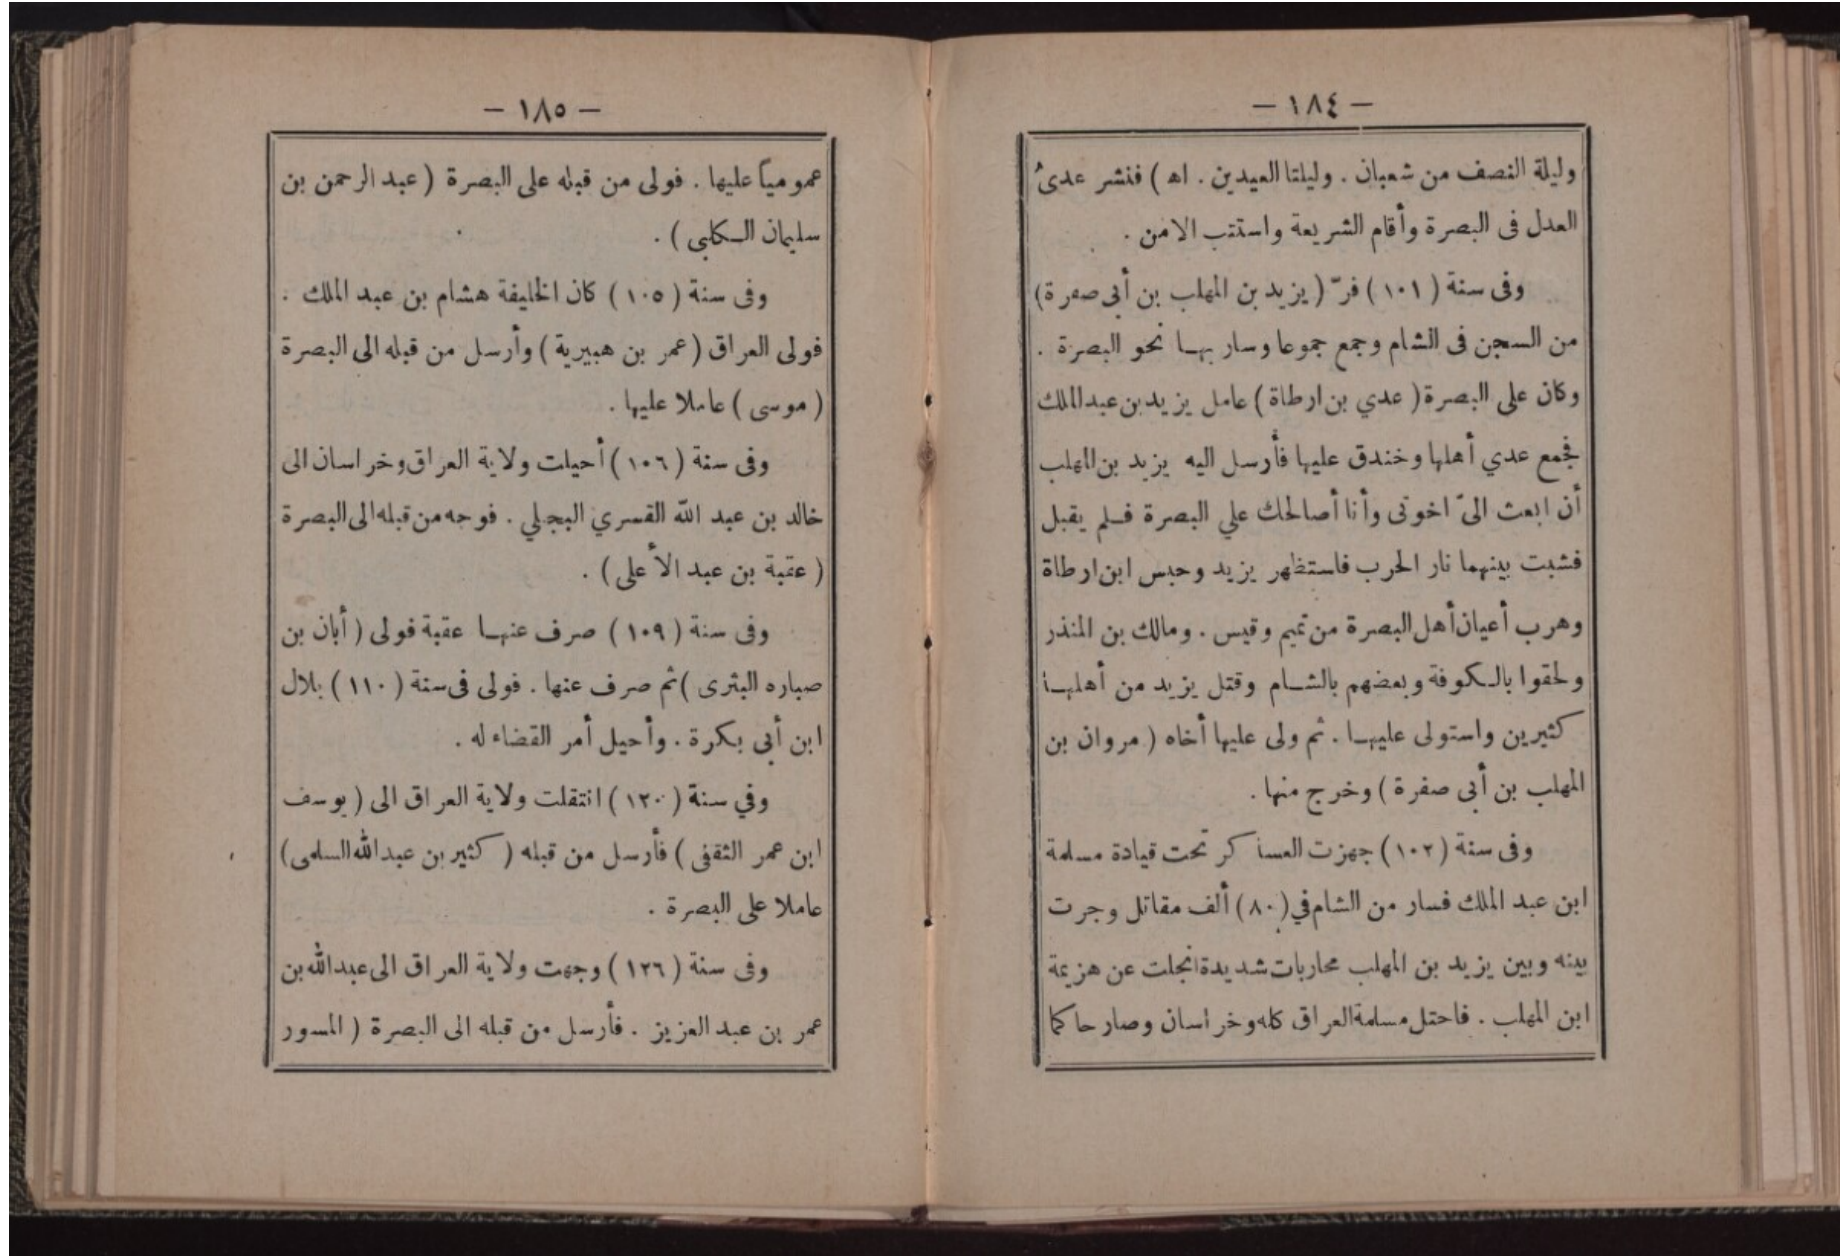 — ١٨٤ —
وليلة النصف من شعبان . وليلتا العيدين . اه ) فنشر عدىُ
العدل فى البصرة وأقام الشريعة واستتب الامن .
وفى سنة ( ١٠١ ) فرّ ( يزيد بن المهلب بن أبى صفرة )
من السجن فى الشام وجمع جموعا وسار بها نحو البصرة .
وكان على البصرة ( عدي بن ارطاة ) عامل يزيد بن عبد الملك
فجمع عدي أهلها وخندق عليها فأرسل اليه يزيد بن المهلب
أن ابعث الىّ اخوتى وأنا أصالحك علي البصرة فلم يقبل
فشبت بينهما نار الحرب فاستظهر يزيد وحبس ابن ارطاة
وهرب أعيان أهل البصرة من تميم وقيس . ومالك بن المنذر
ولحقوا بالكوفة وبعضهم بالشام وقتل يزيد من أهلها
كثيرين واستولى عليها . ثم ولى عليها أخاه ( مروان بن
المهلب بن أبى صفرة ) وخرج منها .
وفى سنة ( ١٠٢ ) جهزت العسا كر تحت قيادة مسلمة
ابن عبد الملك فسار من الشام في ( ٨٠ ) ألف مقاتل وجرت
بينه وبين يزيد بن المهلب محاربات شديدة انجلت عن هزيمة
ابن المهلب . فاحتل مسلمة العراق كله وخراسان وصار حاكما
— ١٨٥ —
عموميا عليها . فولى من قبله على البصرة ( عبد الرحمن بن
سليمان الكلبى ) .
وفى سنة ( ١٠٥ ) كان الخليفة هشام بن عبد الملك .
فولى العراق ( عمر بن هبيرية ) وأرسل من قبله الى البصرة
( موسى ) عاملا عليها .
وفى سنة ( ١٠٦ ) أحيلت ولاية العراق وخراسان الى
خالد بن عبد الله القسري البجلي . فوجه من قبله الى البصرة
( عقبة بن عبد الأعلى ) .
وفى سنة ( ١٠٩ ) صرف عنها عقبة فولى ( أبان بن
صباره البثرى ) ثم صرف عنها . فولى فى سنة ( ١١٠ ) بلال
ابن أبى بكرة . وأحيل أمر القضاء له .
وفي سنة ( ١٢٠ ) انتقلت ولاية العراق الى ( يوسف
ابن عمر الثقفى ) فأرسل من قبله ( كثير بن عبد الله السلمى )
عاملا على البصرة .
وفى سنة ( ١٢٦ ) وجهت ولاية العراق الى عبد الله بن
عمر بن عبد العزيز . فأرسل من قبله الى البصرة ( المسور